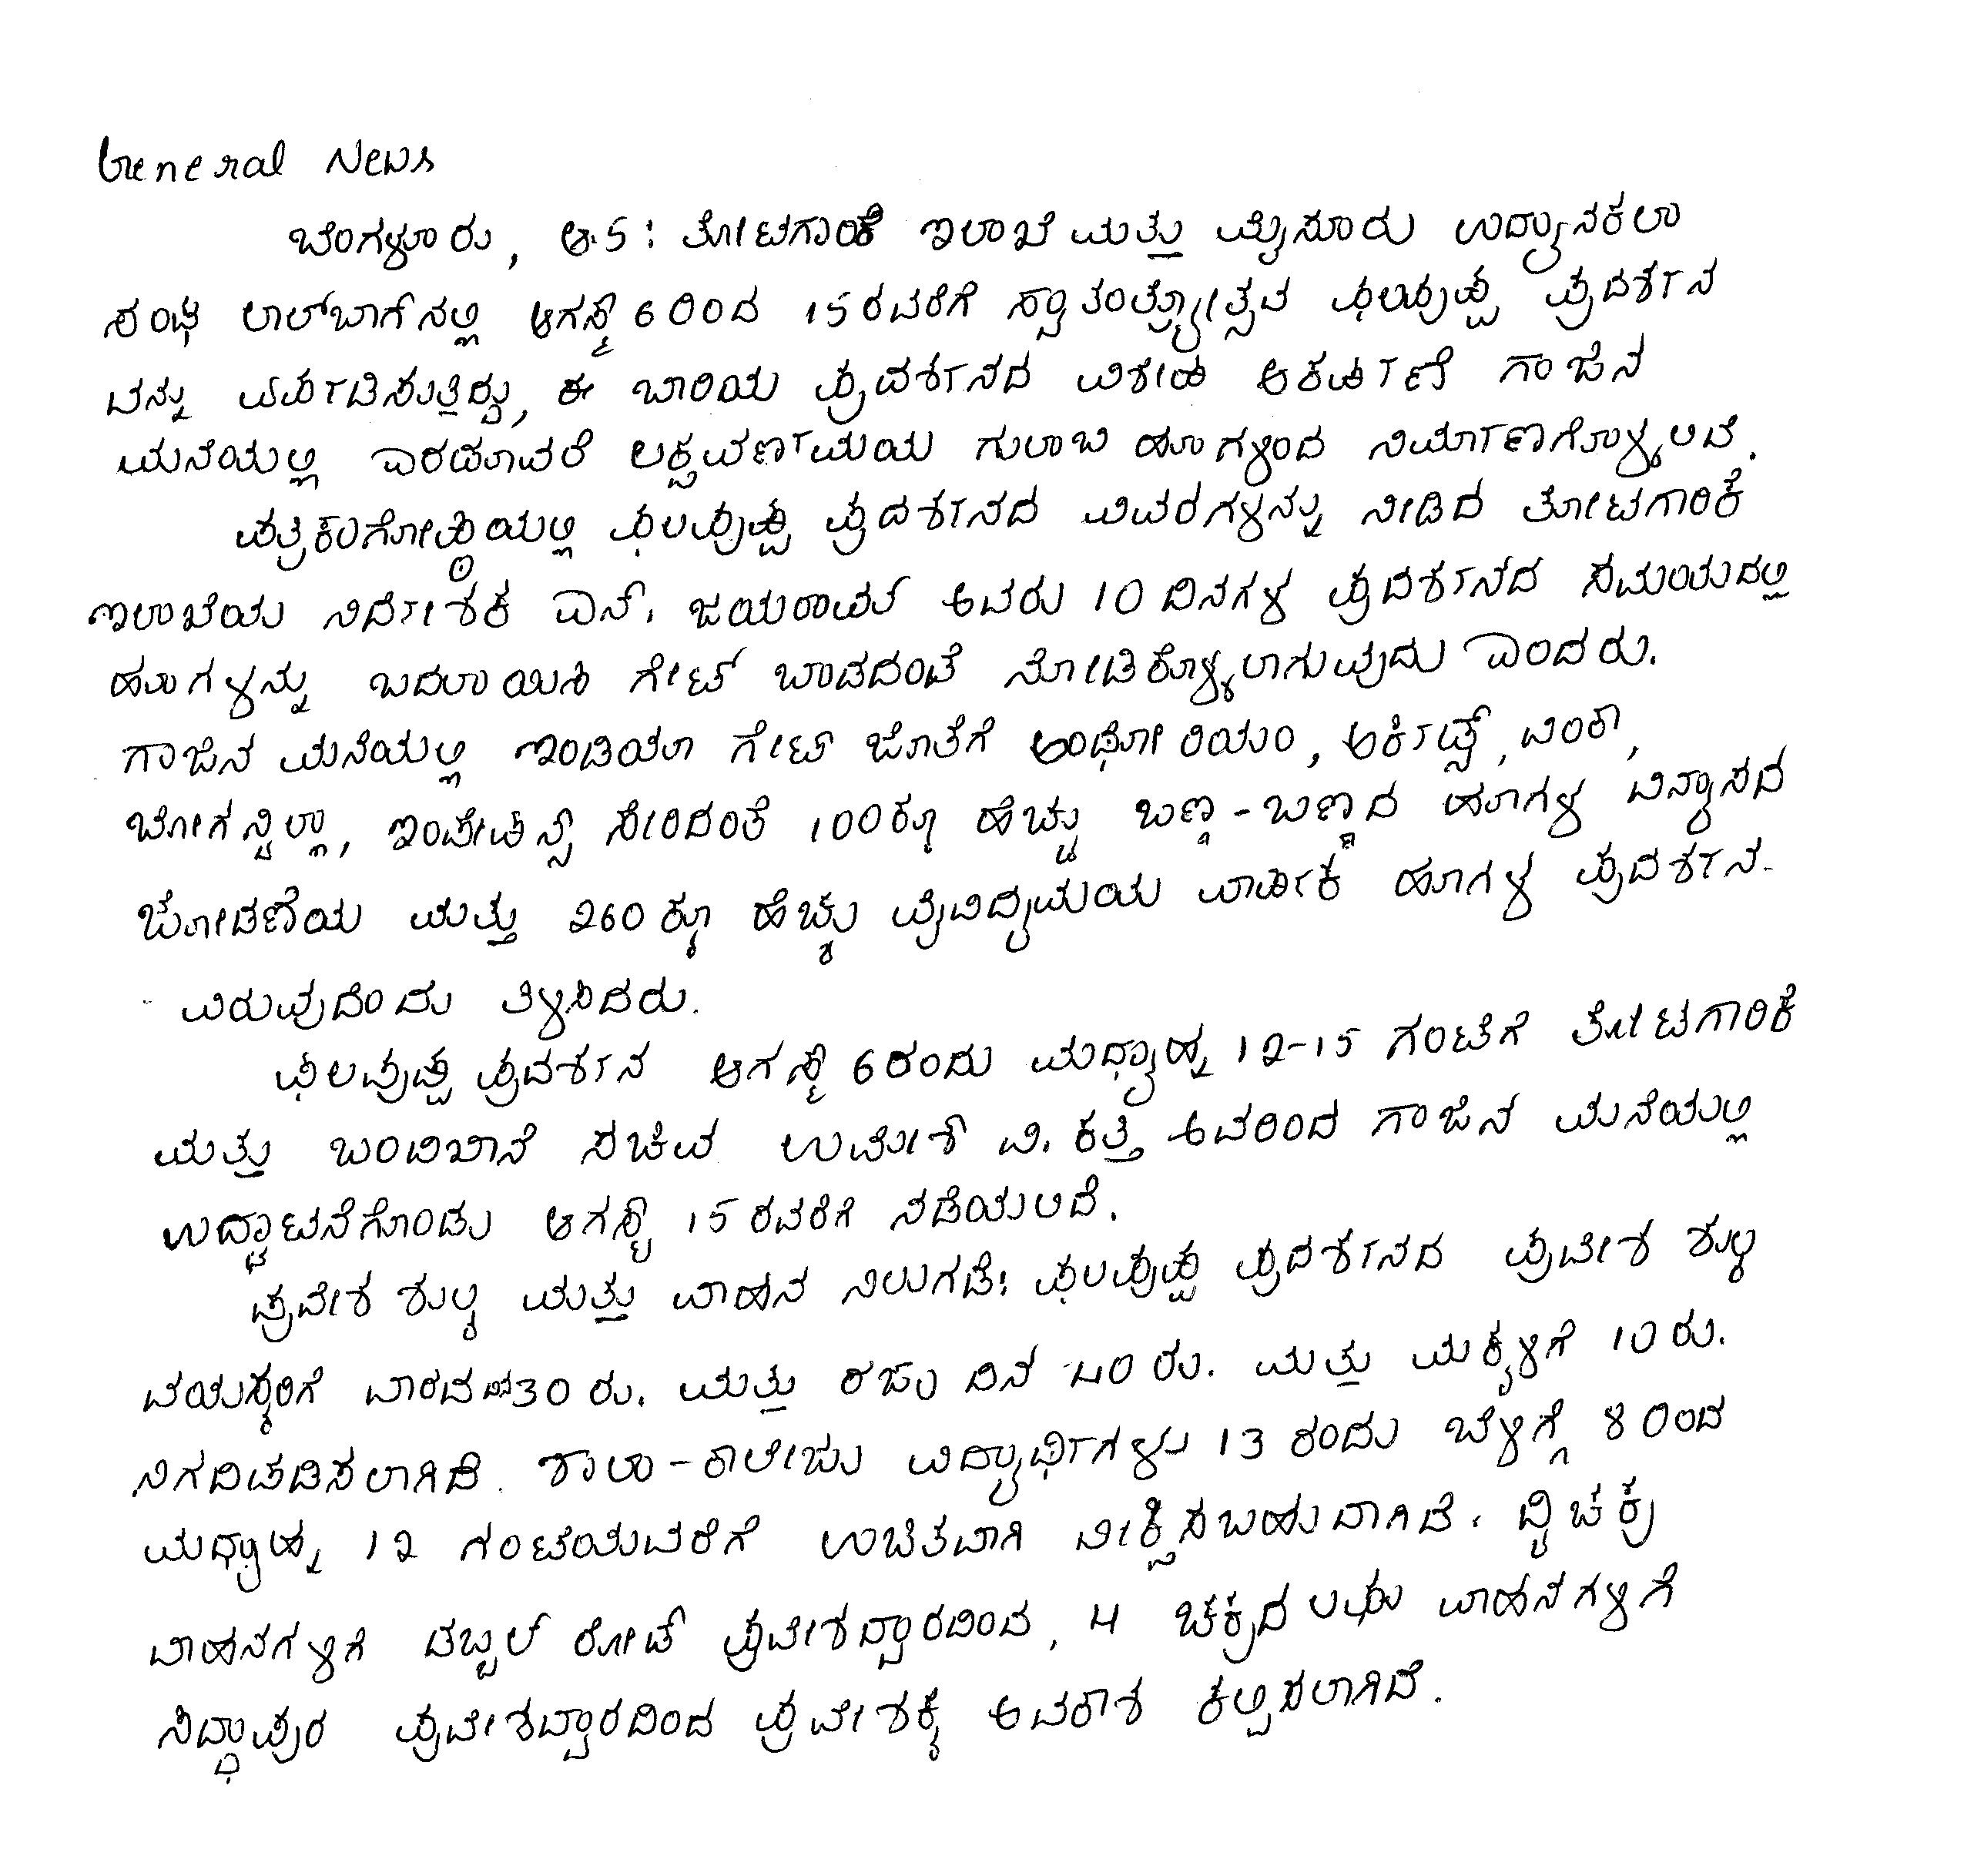 General News
ಬೆಂಗಳೂರು, ಆ.5: ತೋಟಗಾರಿಕೆ ಇಲಾಖೆ ಮತ್ತು ಮೈಸೂರು ಉದ್ಯಾನಕಲಾ
ಸಂಘ ಲಾಲ್‌ಬಾಗ್‌ನಲ್ಲಿ ಆಗಸ್ಟ್ 6ರಿಂದ 15ರವರೆಗೆ ಸ್ವಾತಂತ್ರ್ಯೋತ್ಸವ ಫಲಪುಷ್ಪ ಪ್ರದರ್ಶನ
ವನ್ನು ಏರ್ಪಡಿಸುತ್ತಿದ್ದು, ಈ ಬಾರಿಯ ಪ್ರದರ್ಶನದ ವಿಶೇಷ ಆಕರ್ಷಣೆ ಗಾಜಿನ
ಮನೆಯಲ್ಲಿ ಎರಡೂವರೆ ಲಕ್ಷ ವರ್ಣಮಯ ಗುಲಾಬಿ ಹೂಗಳಿಂದ ನಿರ್ಮಾಣಗೊಳ್ಳಲಿದೆ.
ಪತ್ರಿಕಾಗೋಷ್ಠಿಯಲ್ಲಿ ಫಲಪುಷ್ಪ ಪ್ರದರ್ಶನದ ವಿವರಗಳನ್ನು ನೀಡಿದ ತೋಟಗಾರಿಕೆ
ಇಲಾಖೆಯ ನಿರ್ದೇಶಕ ಎನ್. ಜಯರಾಮ್ ಅವರು 10 ದಿನಗಳ ಪ್ರದರ್ಶನದ ಸಮಯದಲ್ಲಿ
ಹೂಗಳನ್ನು ಬದಲಾಯಿಸಿ ಗೇಟ್ ಬಾಡದಂತೆ ನೋಡಿಕೊಳ್ಳಲಾಗುವುದು ಎಂದರು.
ಗಾಜಿನ ಮನೆಯಲ್ಲಿ ಇಂಡಿಯಾ ಗೇಟ್ ಜೊತೆಗೆ ಅಂಥೋರಿಯಂ, ಆರ್ಕಿಡ್ಸ್, ವಿಂಕಾ,
ಬೋಗನ್ವಿಲ್ಲಾ, ಇಂಪೇಷಿನ್ಸ್ ಸೇರಿದಂತೆ 100ಕ್ಕೂ ಹೆಚ್ಚು ಬಣ್ಣ-ಬಣ್ಣದ ಹೂಗಳ ವಿನ್ಯಾಸದ
ಜೋಡಣೆಯ ಮತ್ತು 260 ಕ್ಕೂ ಹೆಚ್ಚು ವೈವಿಧ್ಯಮಯ ವಾರ್ಷಿಕ ಹೂಗಳ ಪ್ರದರ್ಶನ-
ವಿರುವುದೆಂದು ತಿಳಿಸಿದರು.
ಫಲಪುಷ್ಪ ಪ್ರದರ್ಶನ ಆಗಸ್ಟ್ 6ರಂದು ಮಧ್ಯಾಹ್ನ 12-15 ಗಂಟೆಗೆ ತೋಟಗಾರಿಕೆ
ಮತ್ತು ಬಂದಿಖಾನೆ ಸಚಿವ ಉಮೇಶ್ ವಿ. ಕತ್ತಿ ಅವರಿಂದ ಗಾಜಿನ ಮನೆಯಲ್ಲಿ
ಉದ್ಘಾಟನೆಗೊಂಡು ಆಗಸ್ಟ್ 15 ರವರೆಗೆ ನಡೆಯಲಿದೆ.
ಪ್ರವೇಶ ಶುಲ್ಕ ಮತ್ತು ವಾಹನ ನಿಲುಗಡೆ: ಫಲಪುಷ್ಪ ಪ್ರದರ್ಶನದ ಪ್ರವೇಶ ಶುಲ್ಕ
ವಯಸ್ಕರಿಗೆ ವಾರದ ದಿನ 30 ರು. ಮತ್ತು ರಜಾ ದಿನ 40 ರು. ಮತ್ತು ಮಕ್ಕಳಿಗೆ 10 ರು.
ನಿಗದಿಪಡಿಸಲಾಗಿದೆ. ಶಾಲಾ-ಕಾಲೇಜು ವಿದ್ಯಾರ್ಥಿಗಳು 13 ರಂದು ಬೆಳಿಗ್ಗೆ 8 ರಿಂದ
ಮಧ್ಯಾಹ್ನ 12 ಗಂಟೆಯವರೆಗೆ ಉಚಿತವಾಗಿ ವೀಕ್ಷಿಸಬಹುದಾಗಿದೆ. ದ್ವಿಚಕ್ರ
ವಾಹನಗಳಿಗೆ ಡಬ್ಬಲ್ ರೋಡ್ ಪ್ರವೇಶದ್ವಾರದಿಂದ, 4 ಚಕ್ರದ ಲಘು ವಾಹನಗಳಿಗೆ
ಸಿದ್ಧಾಪುರ ಪ್ರವೇಶದ್ವಾರದಿಂದ ಪ್ರವೇಶಕ್ಕೆ ಅವಕಾಶ ಕಲ್ಪಿಸಲಾಗಿದೆ.